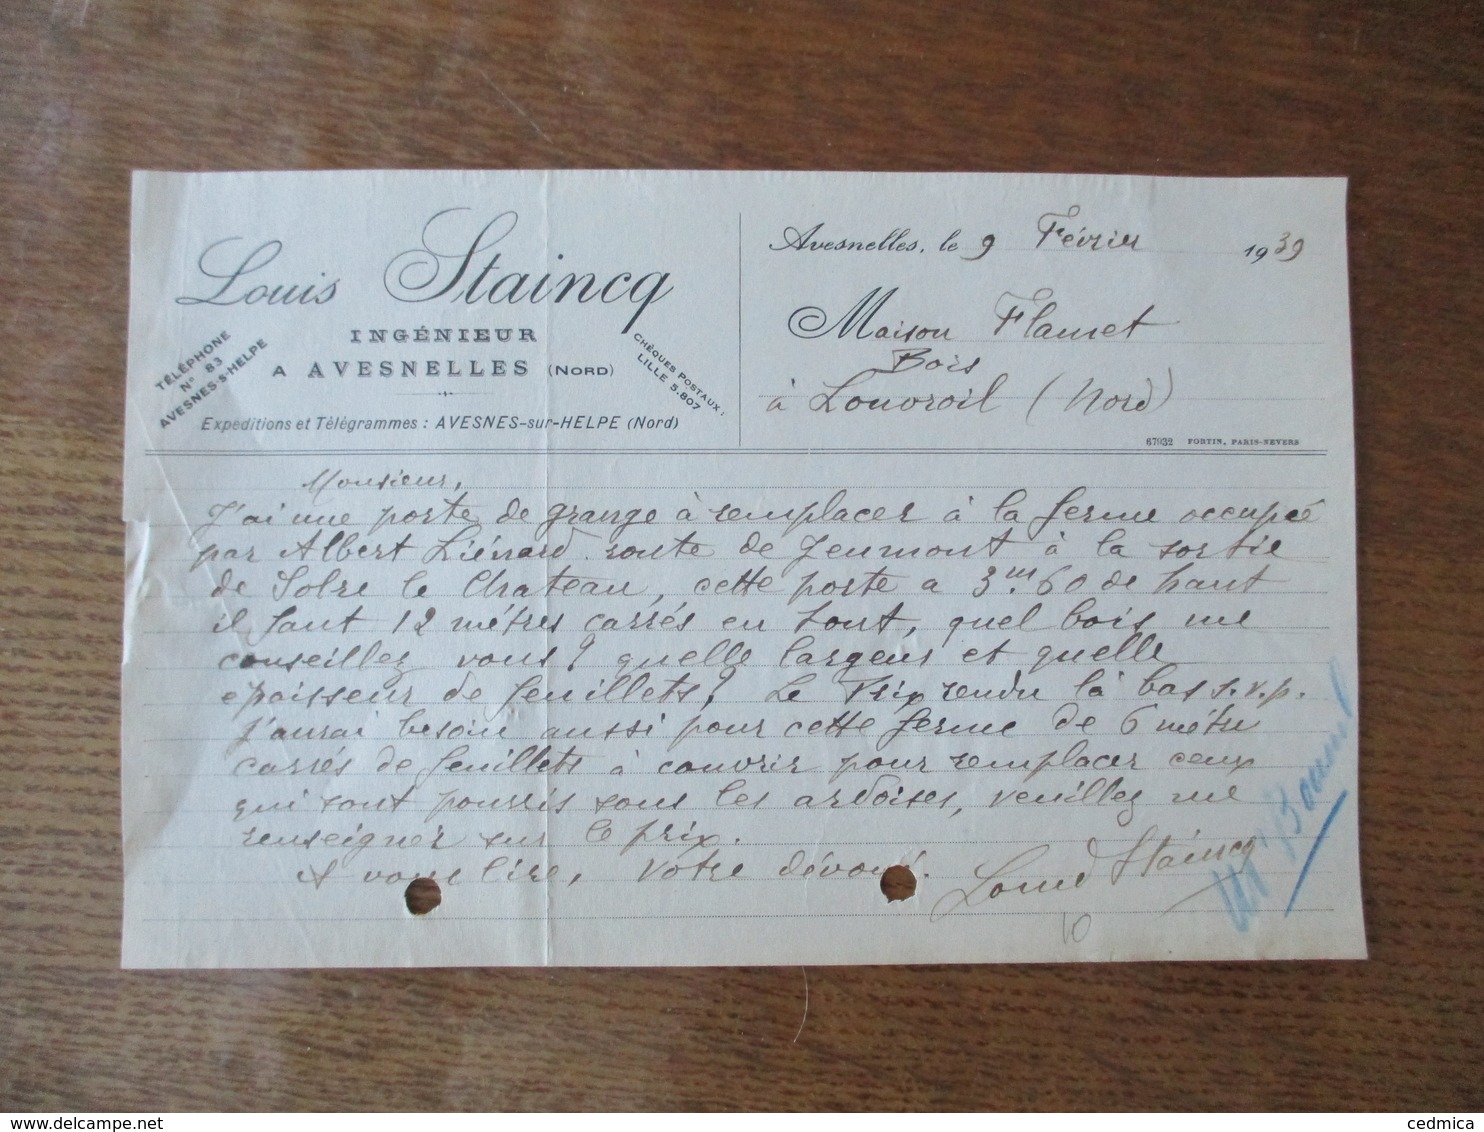 Louis Staincq
INGÉNIEUR
A AVESNELLES (NORD)
TÉLÉPHONE
N° 83
AVESNES-S-HELPE
CHÈQUES POSTAUX :
LILLE 5.807
Expéditions et Télégrammes : AVESNES-sur-HELPE (Nord)
Avesnelles, le 9 Février 1939
Maison Flamet
Bois
à Louvroil (Nord)
67932 FORTIN, PARIS-NEVERS
Monsieur,
J'ai une porte de grange à remplacer à la ferme occupée
par Albert Liénard route de Jeumont à la sortie
de Solre le Chateau, cette porte a 3m.60 de haut
il faut 12 mètres carrés en tout, quel bois me
conseillez vous ? quelle largeur et quelle
epaisseur de feuillets ? Le Prix rendu là bas s.v.p.
J'aurai besoin aussi pour cette ferme de 6 mètres
carrés de feuillets à couvrir pour remplacer ceux
qui sont pourris sous les ardoises, veuillez me
renseigner sur le prix.
A vous lire, Votre dévoué.
Louis Staincq
10